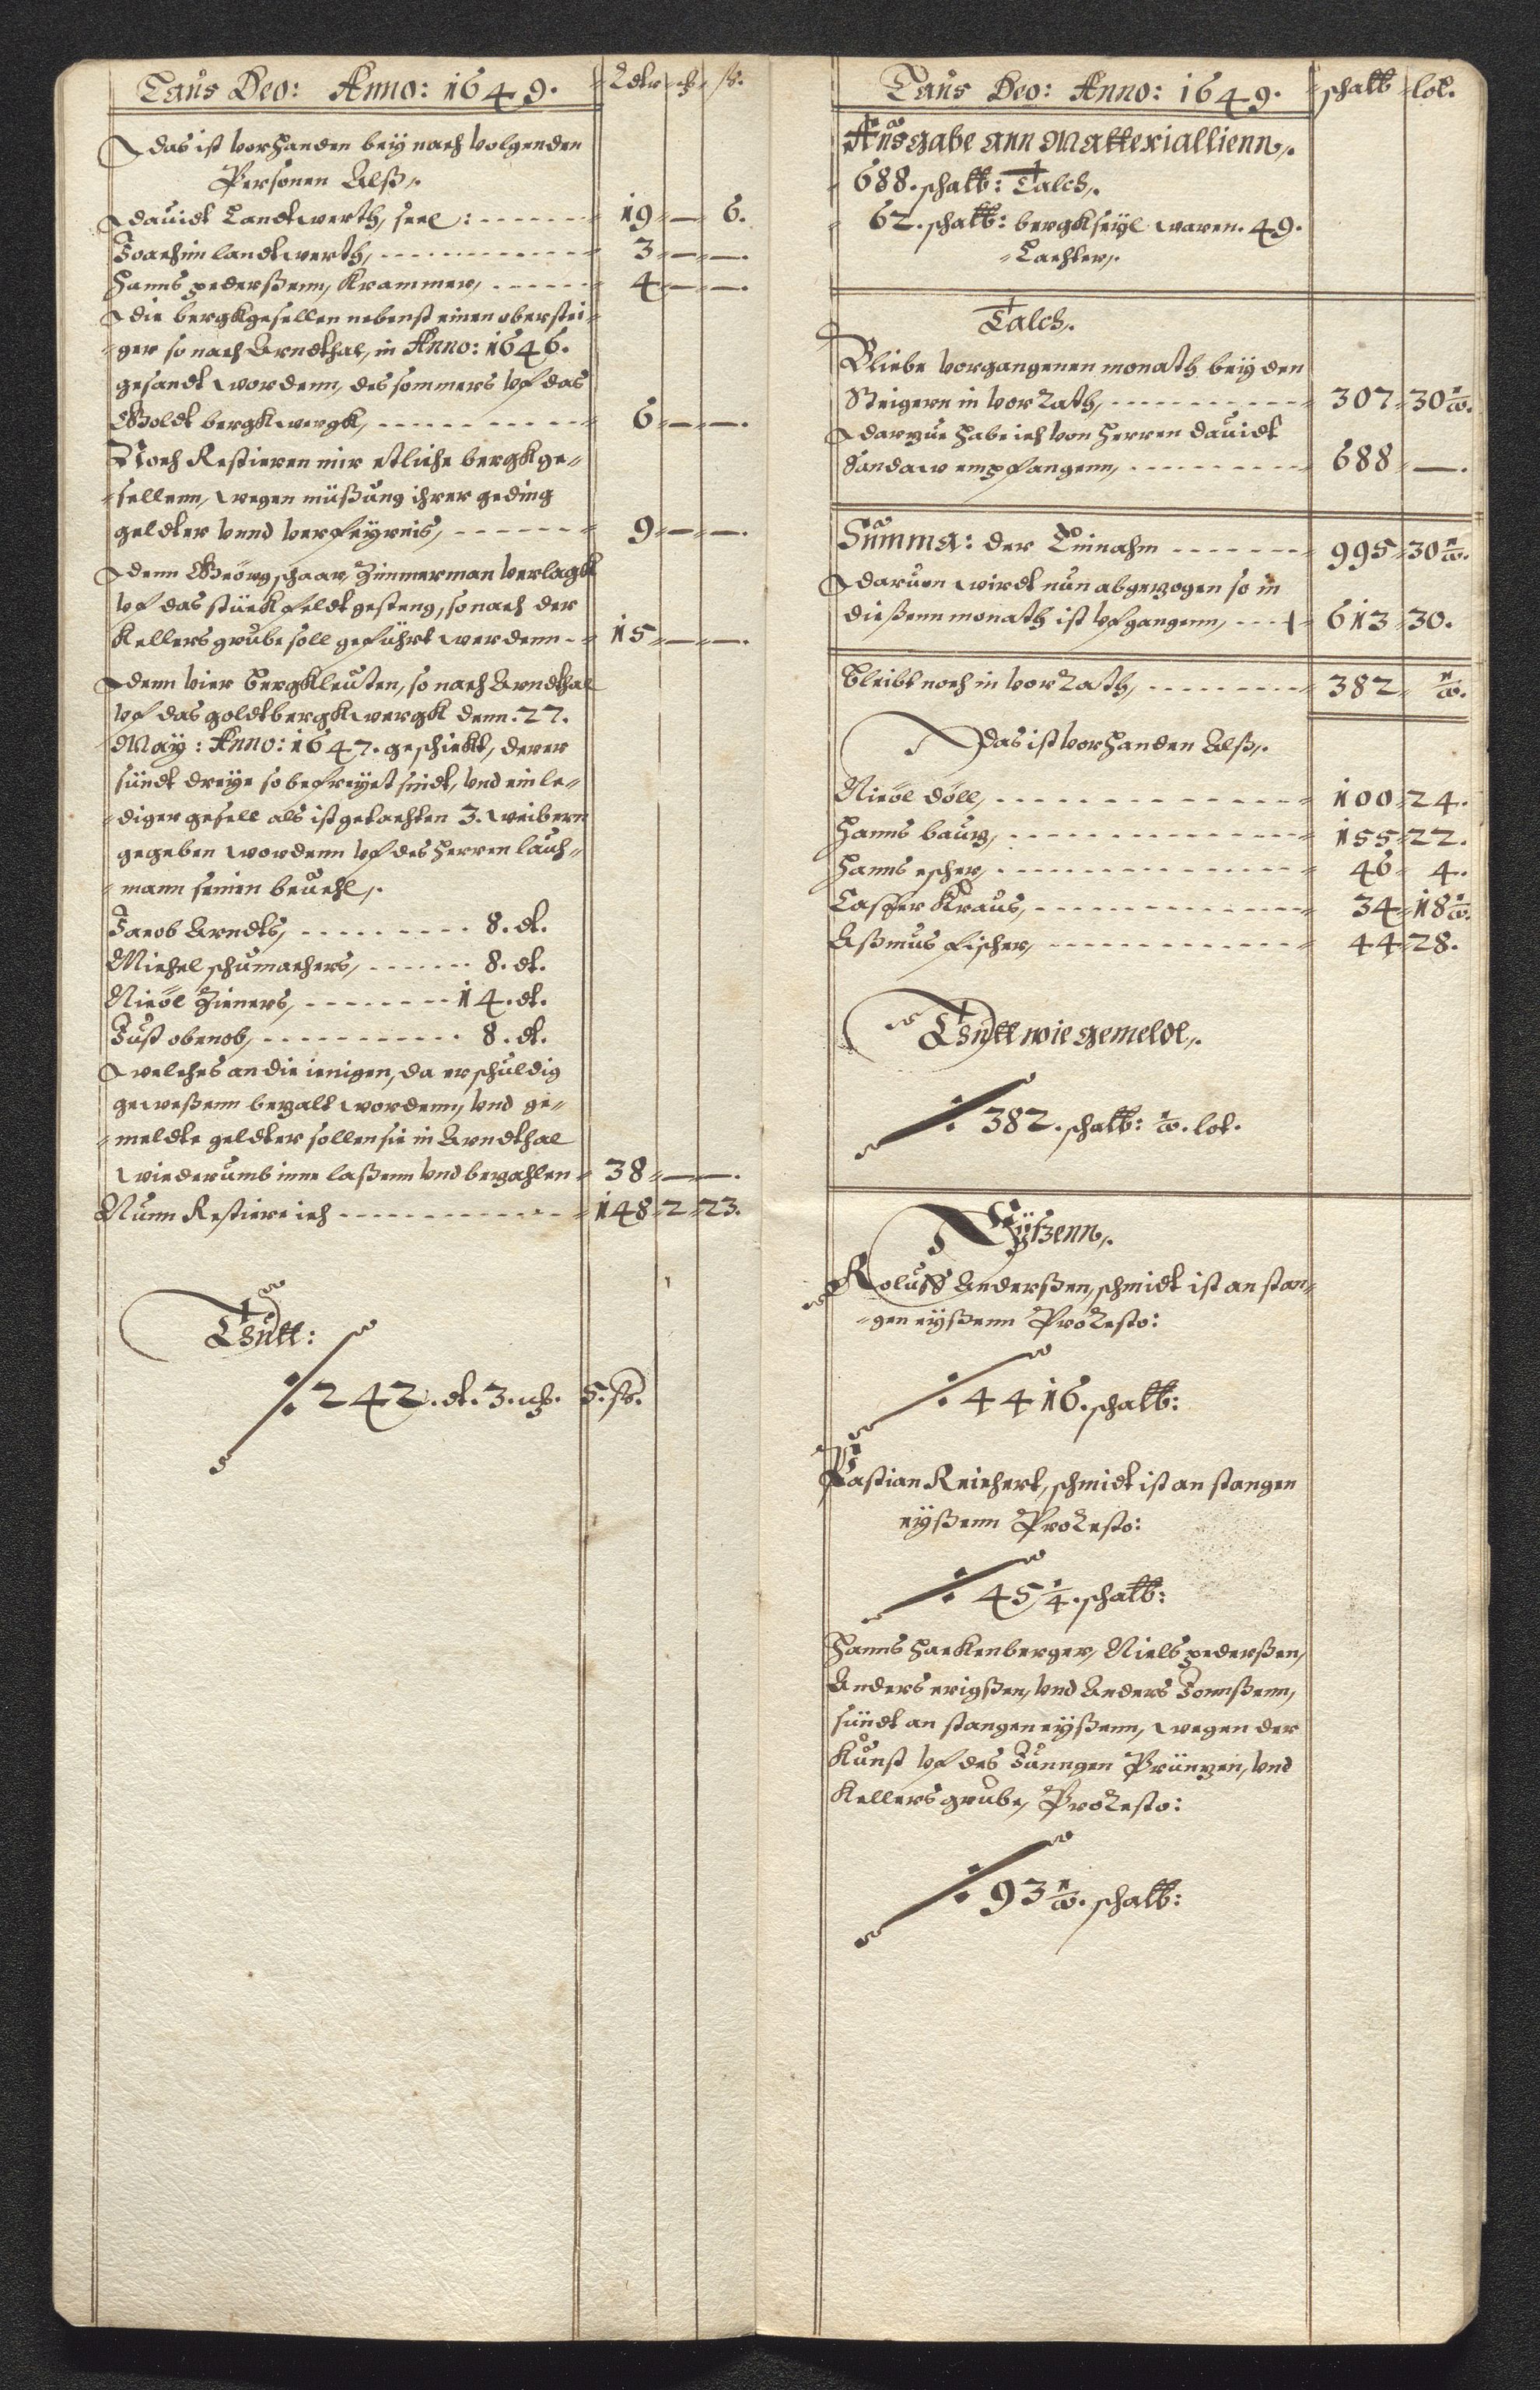 Laus Deo: Anno: 1649.
das ist vorhanden bey nach volgenden
Personen Alß,.
dauidt Landtwerth, seel: 19 — 6.
Joachim landtwerth, 3 — —.
Hanns pederßenn, Krammer, 4 — —.
die bergkgesellen nebenst einen oberstei-
-ger so nach Arndthal, in Anno: 1646.
gesandt wordenn, des sommers vf das
Goldt bergkwergk, 6 — —.
Noch Restieren mir etliche bergkge-
-sellenn, wegen müßung ihrer geding
geldter vnnd verfeyrnis, 9 — —.
denn Geörg schaar, Zimmerman verlagk
vf das stück feldtgesteng, so nach der
Kellers grube soll geführt werdenn 15 — —.
denn vier Bergkleuten, so nach Arndthal
vf das goldtbergkwergk denn .27.
May: Anno: 1647. geschickt, derer
sündt dreye so befreyet sindt, vnd ein le-
-diger gesell als ist gedachten 3. weibern
gegeben wordenn vf des Herren lauch-
-mann seinen beuehl,.
Jacob Arndts, 8. dt.
Michel schumachers, 8. dt.
Nicöl Zieners, 14. dt.
Just obenob, 8. dt.
welches an die ienigen, da er schuldig
geweßenn bezalt wordenn, vnd ge-
-meldte geldter sollen sie in Arndthal
wiederumb inne laßenn vnd bezahlen 38 — —.
Nunn Restiere ich 148 2 23.
Thutt:
242. dt. 3. 5. ß.
Laus Deo: Anno: 1649. schalb lot.
Ausgabe ann Matterialliennn,.
688. schalb: Talch,.
62. schalb: bergkseyl waren. 49.
Lachter,.
Talch,.
Bliebe vorgangenen monath bey den
Steigern in vorrath, 307 30 1/2.
darzue habe ich von Herren dauidt
Sandaw empfangenn, 688 —.
Summa: der Einnahm 995 30 1/2.
daruon wirdt nun abgezogen so in
dießenn monath ist vfgangenn, 613 30.
Bleibt noch in vorrath, 382 1/2.
Das ist vorhanden Alß,.
Nicöl döll, 100 24.
Hanns bautz, 155 22.
Hanns escher, 46 4.
Casper Kraus, 34 18 1/2.
Aßmus fischer, 44 28.
Thutt wie gemeldt,.
382. schalb: 1/2. lot.
Eyßenn,.
Roluff Anderßen, schmidt ist an stan-
-gen eyßenn Pro Resto:
4416. schalb:
Bastian Reichert, schmidt ist an stangen
eyßenn Pro Resto:
45 1/4. schalb:
Hanns Hackenberger, Niels pederßen,
Anders erigßen, vnd Anders Jonnßenn,
sündt an stangen eyßenn, wegen der
Kunst vf des Jungen Printzen, vnd
Kellers grube, Pro Resto:
93 1/2. schalb: